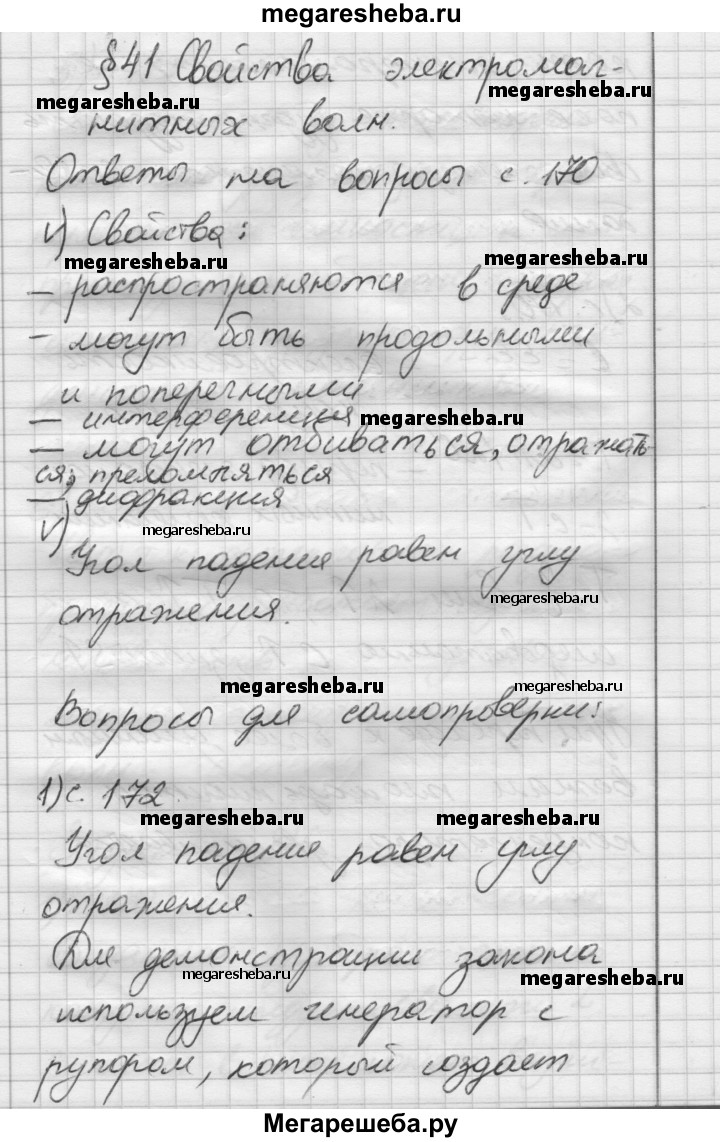 megaresheba.ru
§41 Свойства электромаг-
megaresheba.ru megaresheba.ru
нитных волн.
Ответы на вопросы с. 170
v) Свойства:
megaresheba.ru megaresheba.ru
– распространяются в среде
– могут быть продольными
и поперечными
– интерференция megaresheba.ru
– могут отбиваться, отражать-
ся, преломляться
– дифракция
megaresheba.ru megaresheba.ru
v)
Угол падения равен углу
megaresheba.ru
отражения.
megaresheba.ru megaresheba.ru
Вопросы для самопроверки:
1) с. 172.
megaresheba.ru megaresheba.ru
Угол падения равен углу
отражения.
Для демонстрации закона
megaresheba.ru megaresheba.ru
используем генератор с
рупором, который создает
Мегарешеба.ру